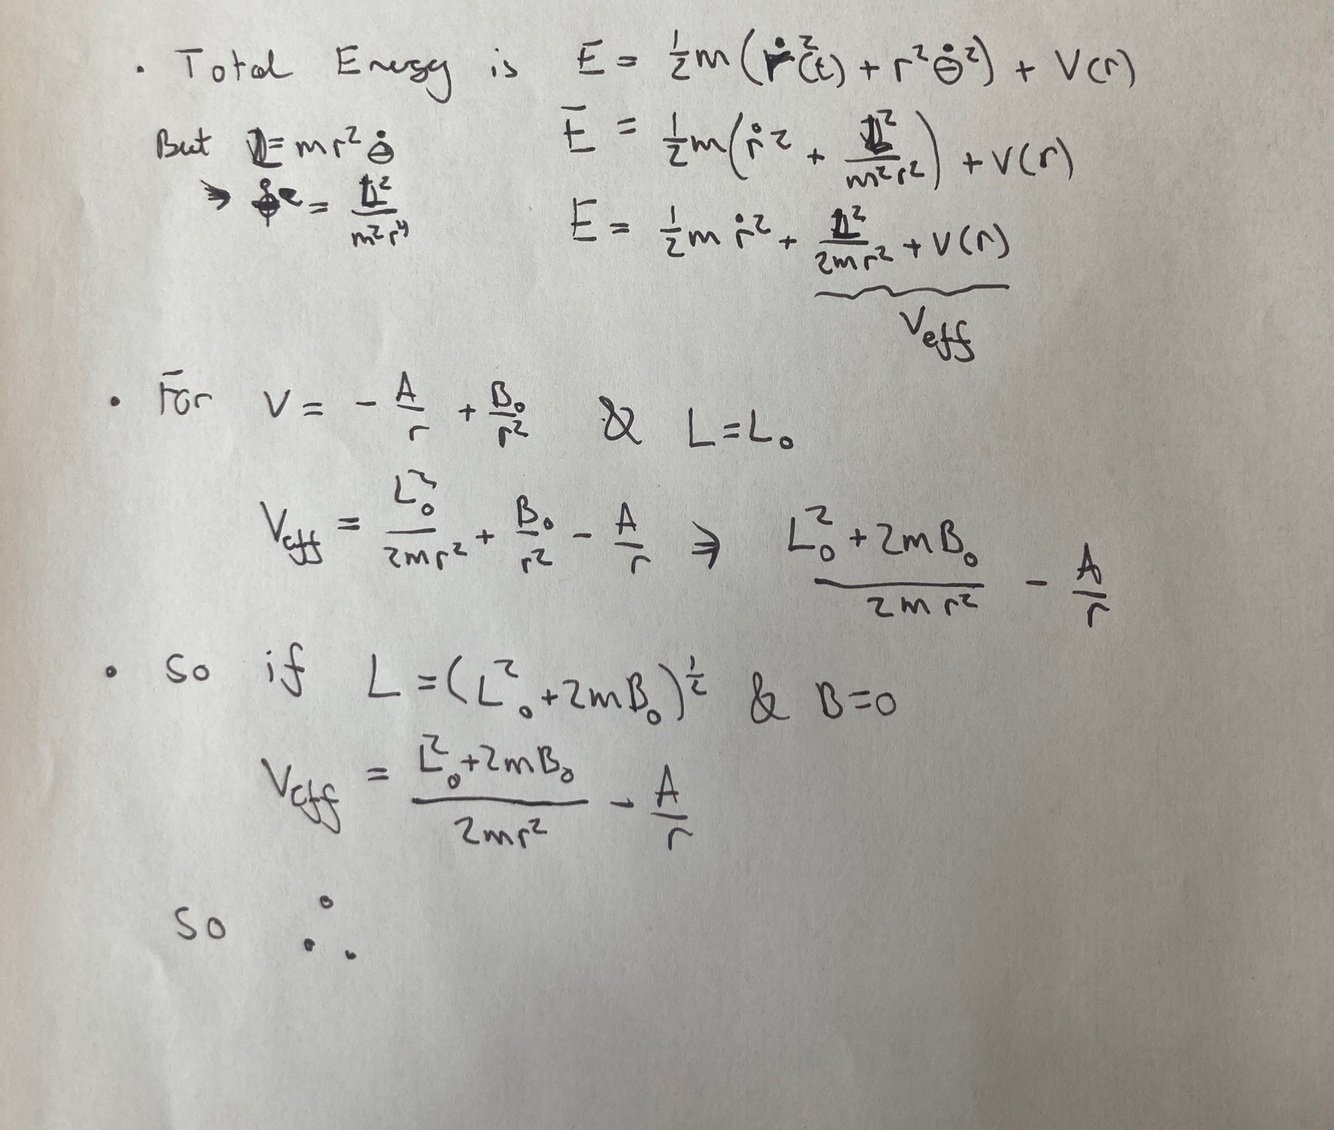 • Total Energy is E = ½m(ṙ²(t) + r²θ̇²) + V(r)
But L = mr²θ̇ E = ½m(ṙ² + L²/m²r²) + V(r)
⇒ θ̇² = L²/m²r⁴ E = ½mṙ² + L²/2mr² + V(r)
Veff
• For V = -A/r + B₀/r² & L = L₀
Veff = L₀²/2mr² + B₀/r² - A/r ⇒ (L₀² + 2mB₀)/2mr² - A/r
• So if L = (L₀² + 2mB₀)^½ & B = 0
Veff = (L₀² + 2mB₀)/2mr² - A/r
So ∴